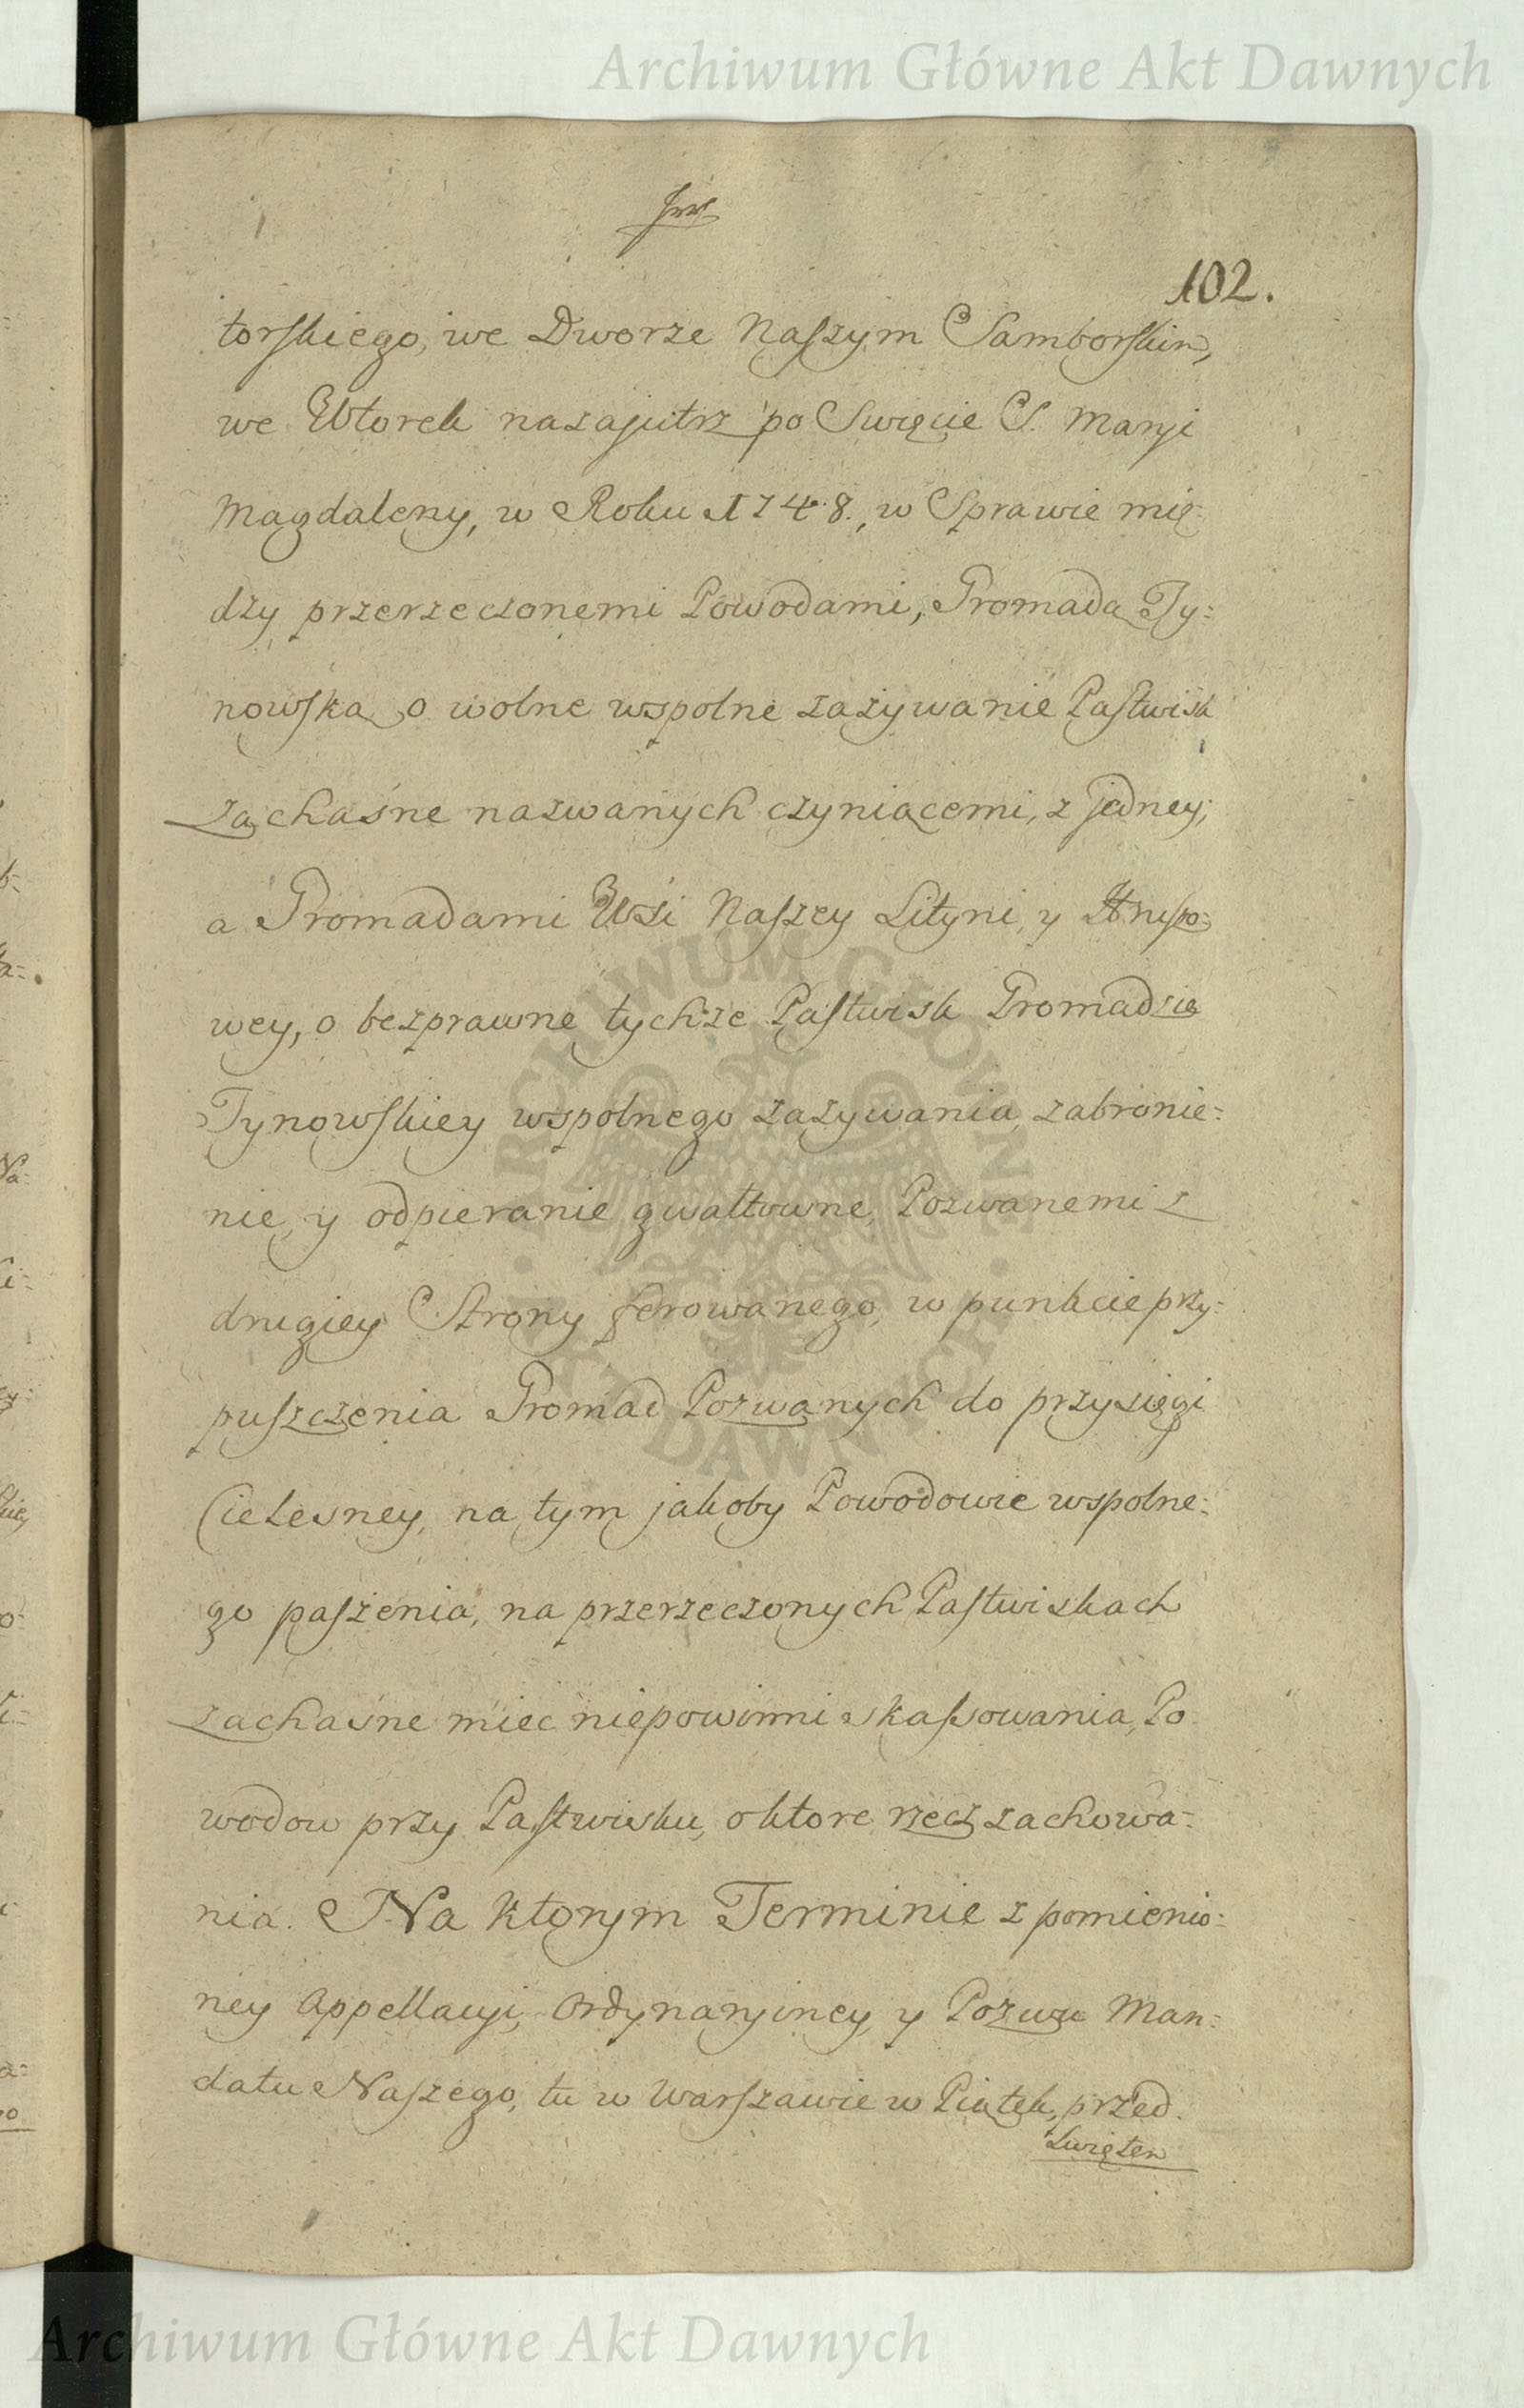 Archiwum Główne Akt Dawnych
102.
torskiego, we Dworze Naszym Samborskim,
we Wtorek nazajutrz po Swięcie S. Maryi
Magdaleny, w Roku 1748., w Sprawie mię-
dzy przerzeczonemi Powodami, Gromadą Ty-
nowską, o wolne wspolne zażywanie Pastwisk
Zachaśne nazwanych czyniącemi, z jedney;
a Gromadami Wsi Naszey Lityni, y
wey, o bezprawne tychże Pastwisk Gromadzie
Tynowskiey wspolnego zażywania, zabronie-
nie, y odpieranie gwałtowne, Pozwanemi z
drugiey Strony ferowanego, w punkcie przy-
puszczenia Gromad Pozwanych do przysięgi
Cielesney, na tym jakoby Powodowie wspolne-
go paszenia, na przerzeczonych Pastwiskach
Zachaśne miec niepowinni skassowania, Po
wodow przy Pastwisku, o ktore rzecz zachowa-
nia. Na ktorym Terminie z pomienio-
ney Appellacyi, Ordynaryiney, y Pozwu Man-
datu Naszego, tu w Warszawie w Piątek, przed
Swiętem
ARCHIWUM GŁÓWNE AKT DAWNYCH
Archiwum Główne Akt Dawnych